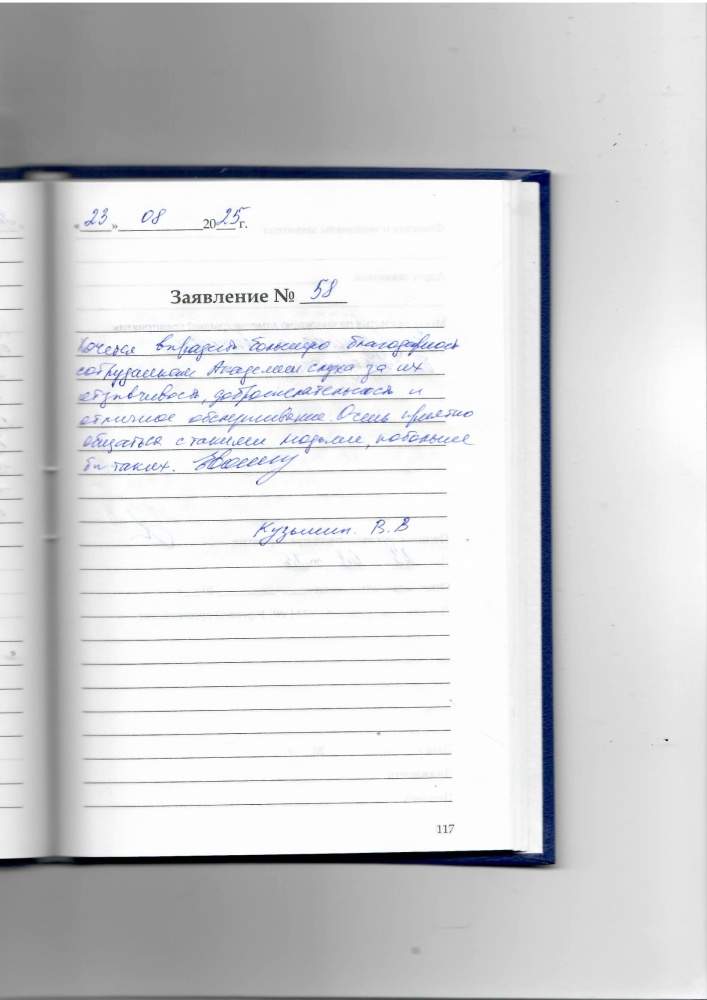 «23» 08 2025 г.
Заявление № 58
Хочется выразить большую благодарность
сотрудникам Академии слуха за их
отзывчивость, доброжелательность и
отличное обслуживание. Очень приятно
общаться с такими людьми, побольше
бы таких.
Кузьмин. В.В
117